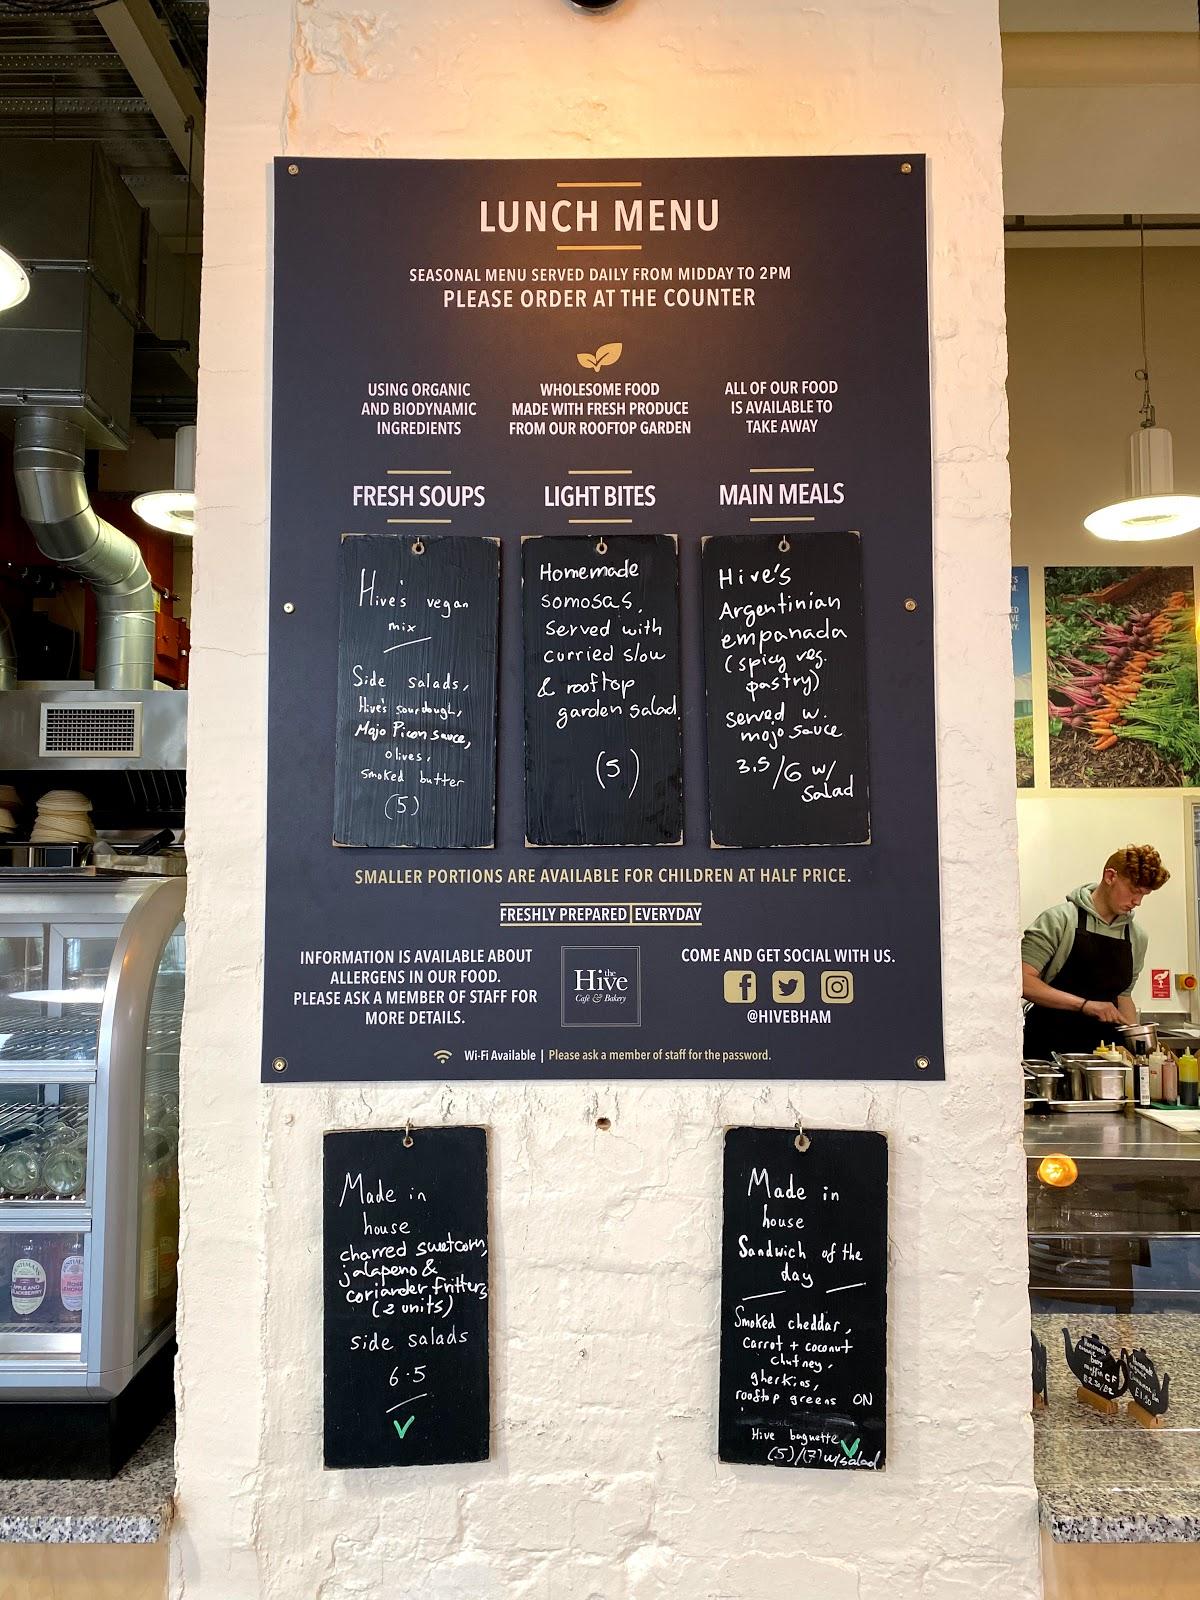 LUNCH MENU
SEASONAL MENU SERVED DAILY FROM MIDDAY TO 2PM
PLEASE ORDER AT THE COUNTER
USING ORGANIC
AND BIODYNAMIC
INGREDIENTS
WHOLESOME FOOD
MADE WITH FRESH PRODUCE
FROM OUR ROOFTOP GARDEN
ALL OF OUR FOOD
IS AVAILABLE TO
TAKE AWAY
FRESH SOUPS
Hive's vegan
mix
Side salads,
Hive's sourdough,
Mojo Picon sauce,
olives,
smoked butter
(5)
LIGHT BITES
Homemade
somosas,
Served with
curried slow
& rooftop
garden salad.
(5)
MAIN MEALS
Hive's
Argentinian
empanada
(spicy veg.
pastry)
served w.
mojo sauce
3.5/6 w/
Salad
SMALLER PORTIONS ARE AVAILABLE FOR CHILDREN AT HALF PRICE.
FRESHLY PREPARED EVERYDAY
INFORMATION IS AVAILABLE ABOUT
ALLERGENS IN OUR FOOD.
PLEASE ASK A MEMBER OF STAFF FOR
MORE DETAILS.
the
Hive
Café & Bakery
COME AND GET SOCIAL WITH US.
@HIVEBHAM
Wi-Fi Available | Please ask a member of staff for the password.
Made in
house
charred sweetcorn,
jalapeno &
coriander fritters
(2 units)
side salads
6.5
Made in
house
Sandwich of the
day
Smoked cheddar,
carrot + coconut
chutney,
gherkins,
rooftop greens ON
Hive baguette
(5)/(7) w/salad
APPLE AND
BLACKBERRY
Homemade
£1.50